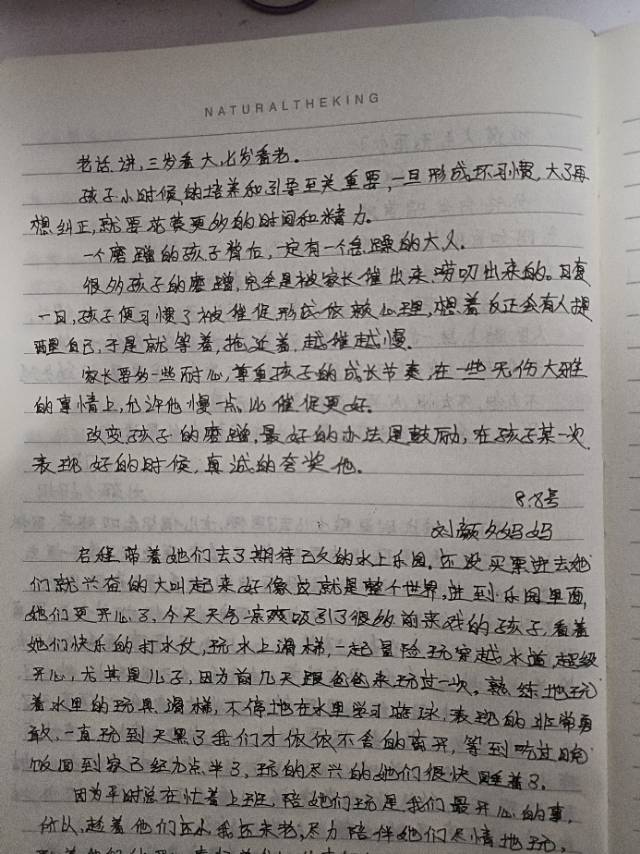 NATURALTHEKING
老话讲,三岁看大,七岁看老。
孩子小时候的培养和引导至关重要,一旦形成坏习惯,大了再
想纠正,就要花费更多的时间和精力。
一个磨蹭的孩子背后,一定有一个急躁的大人。
很多孩子的磨蹭,完全是被家长催出来,唠叨出来的。日复
一日,孩子便习惯了被催促形成依赖心理,想着反正会有人提
醒自己,于是就等着,拖延着,越催越慢。
家长要多一些耐心,尊重孩子的成长节奏,在一些无伤大雅
的事情上,允许他慢一点,比催促更好。
改变孩子的磨蹭,最好的办法是鼓励,在孩子某一次
表现好的时候,真诚的夸奖他。
8.8号
刘颜夕妈妈
启程带着她们去了期待已久的水上乐园,还没买票进去她
们就兴奋的大叫起来好像这就是整个世界,进到乐园里面,
她们更开心了,今天天气凉爽吸引了很多前来戏的孩子,看着
她们快乐的打水仗,玩水上滑梯,一起冒险玩穿越水道,超级
开心,尤其是儿子,因为前几天跟爸爸来玩过一次,熟练地玩
着水里的玩具、滑梯,不停地在水里学习游泳,表现的非常勇
敢,一直玩到天黑了我们才依依不舍的离开,等到吃过晚
饭回到家已经九点半了,玩的尽兴的她们很快睡着了。
因为平时总在忙着上班,陪她们玩是我们最开心的事,
所以,趁着他们还小我还未老,尽力陪伴她们尽情地玩,